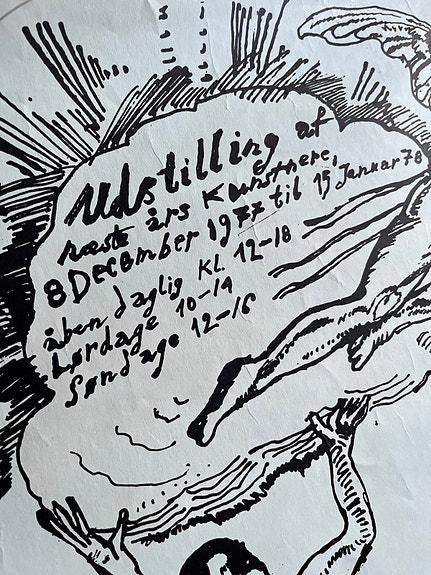 Udstilling af
næste års Kunstnere,
8 December 1977 til 15 Januar 78
åben daglig Kl. 12-18
Lørdage 10-14
Søndage 12-16